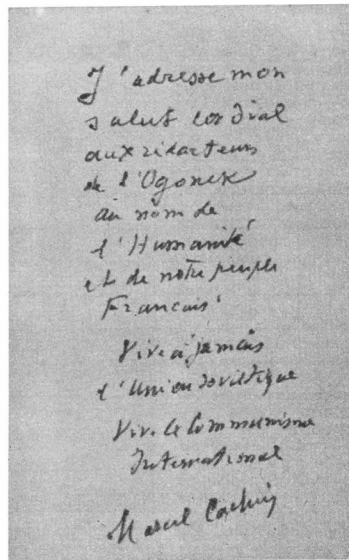 J'adresse mon
salut cordial
aux rédacteurs
de l'Ogonek
au nom de
l'Humanité
et de notre peuple
Français!
Vive à jamais
l'Union Soviétique
Vive le Communisme
International
Marcel Cachin